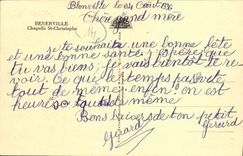 Blonville le 24 Août 1936
BENERVILLE
Chapelle St-Christophe
Chère grand mère
je te souhaite une bonne fête
et une bonne santé j'espère que
tu vas bien, je vais bientôt te re-
voir. Ce que le temps passe
tout de même, enfin on est
heureux tout de même
Bons baisers de ton petit
Gérard
Gérard